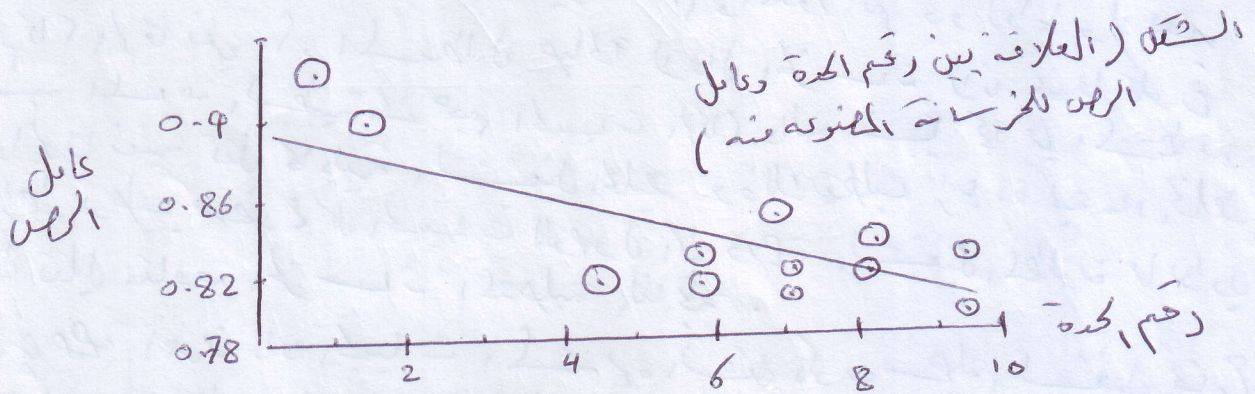 الشكل ( العلاقة بين رقم الحدة وعامل
الرص للخرسانة المصنوعة منه )
عامل
الرص
0.9
0.86
0.82
0.78
2 4 6 8 10
رقم الحدة